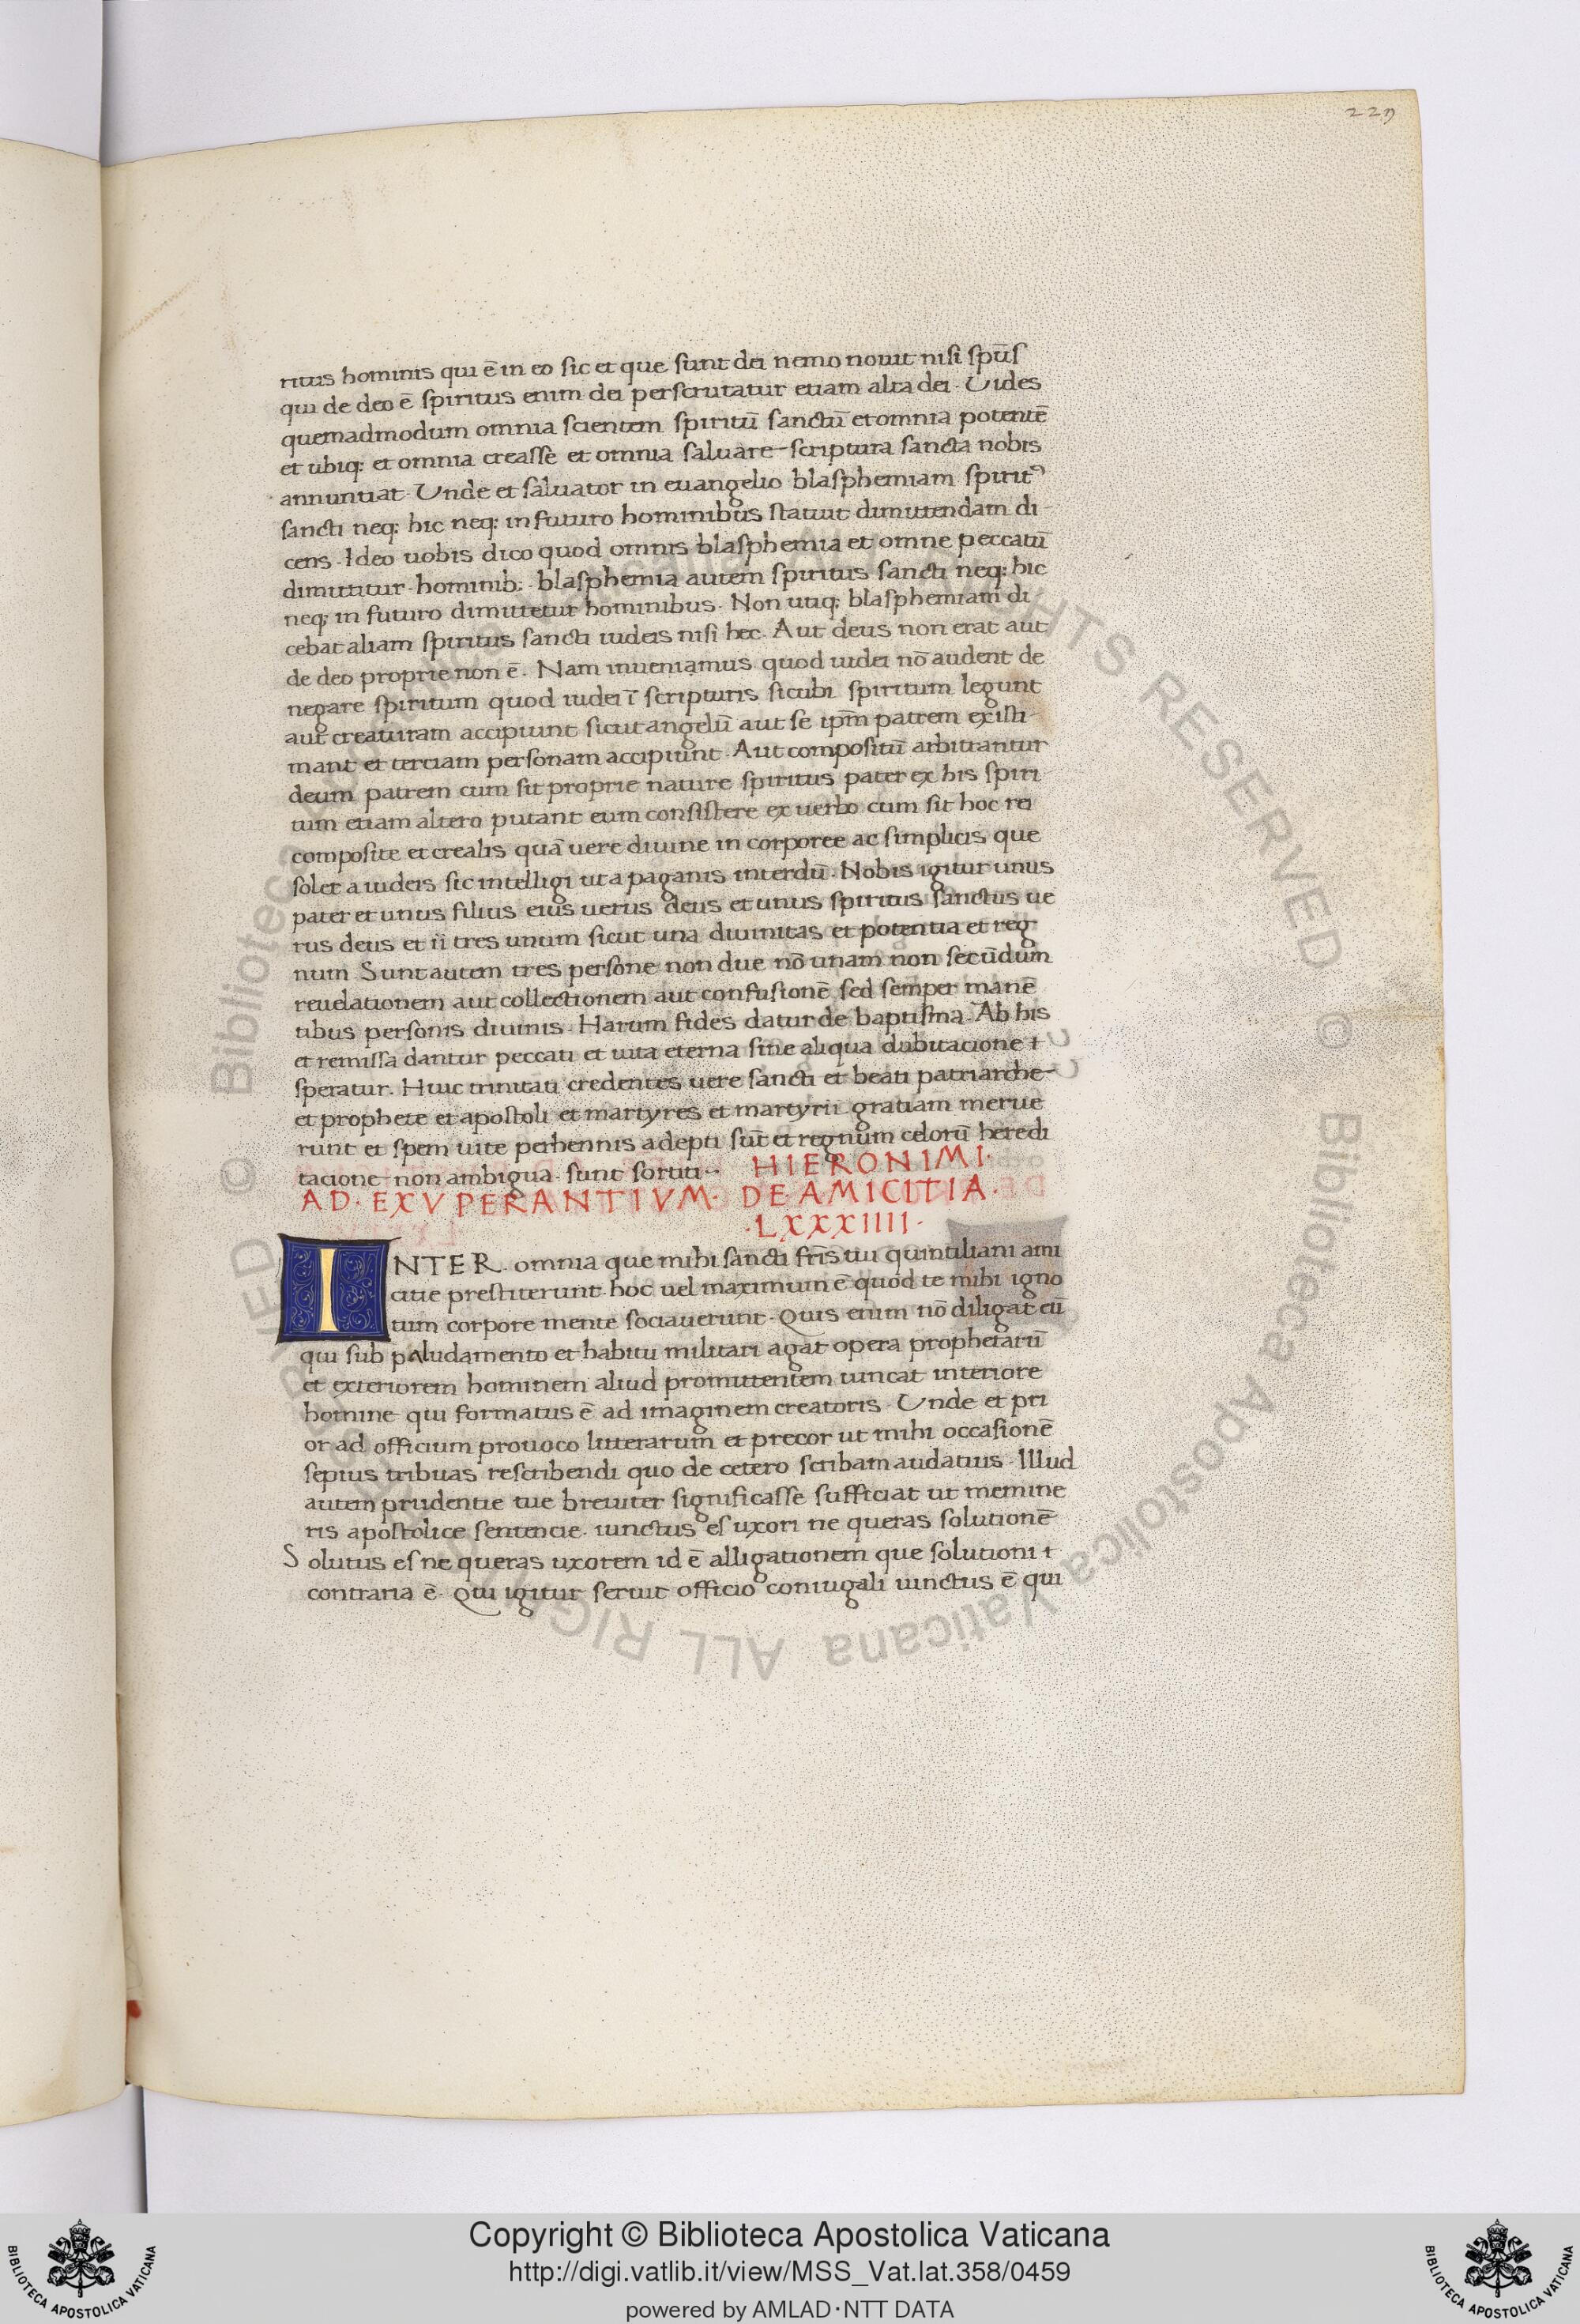 229
ritus hominis qui ē in eo sic et que sunt dei nemo nouit nisi spūs
qui de deo ē spiritus enim dei perscrutatur etiam alta dei. Vides
quemadmodum omnia scientem spiritū sanctū et omnia potentē
et ubiq: et omnia creasse et omnia saluare scriptura sancta nobis
annuntiat. Unde et saluator in euangelio blasphemiam spirit⁹
sancti neq: hic neq: in futuro hominibus statuit dimittendam di-
cens. Ideo uobis dico quod omnis blasphemia et omne peccatū
dimittitur hominib: blasphemia autem spiritus sancti neq: hic
neq: in futuro dimittetur hominibus. Non utiq: blasphemiam di
cebat aliam spiritus sancti iudeis nisi hec. Aut deus non erat aut
de deo proprie non ē. Nam inueniamus quod iudei nō audent de
negare spiritum quod iudei ī scripturis sicubi spiritum legunt
aut creaturam accipiunt sicut angelū aut se ipm̄ patrem existi-
mant et terciam personam accipiunt. Aut compositū arbitrantur
deum patrem cum sit proprie nature spiritus pater ex his spiri
tum etiam altero putant eum consistere ex uerbo cum sit hoc rei
composite et crealis quā uere diuine in corporee ac simplicis que
solet a iudeis sic intelligi ut a paganis interdū. Nobis igitur unus
pater et unus filius eius uerus deus et unus spiritus sanctus ue
rus deus et ii tres unum sicut una diuinitas et potentia et reg
num Sunt autem tres persone non due nō unam non secūdum
reuelationem aut collectionem aut confusionē sed semper manē
tibus personis diuinis. Harum fides datur de baptisma. Ab his
et remissa dantur peccati et uita eterna sine aliqua dubitacione i
speratur. Huic trinitati credentes uere sancti et beati patriarche
et prophete et apostoli et martyres et martyrii gratiam merue
runt et spem uite perhennis adepti sūt et regnum celorū heredi
tacione non ambigua sunt sortiti. HIERONIMI.
AD. EXVPERANTIVM. DE AMICITIA.
.LXXXIIII.
INTER omnia que mihi sancti fr̄is tui quintiliani ami
citie prestiterunt hoc uel maximum ē quod te mihi igno
tum corpore mente sociauerunt. Quis enim nō diligat eū
qui sub paludamento et habitu militari agat opera prophetarū
et exteriorem hominem aliud promittentem uincat interiore
homine qui formatus ē ad imaginem creatoris. Unde et pri
or ad officium prouoco litterarum et precor ut mihi occasionē
sepius tribuas rescribendi quo de cetero scribam audatius. Illud
autem prudentie tue breuiter significasse sufficiat ut memine
ris apostolice sentencie. iunctus es uxori ne queras solutionē
Solutus es ne queras uxorem id ē alligationem que solutioni i
contraria ē. Qui igitur seruit officio coniugali uinctus ē qui
Copyright © Biblioteca Apostolica Vaticana
http://digi.vatlib.it/view/MSS_Vat.lat.358/0459
powered by AMLAD·NTT DATA
BIBLIOTECA APOSTOLICA VATICANA
BIBLIOTECA APOSTOLICA VATICANA
© Biblioteca Apostolica Vaticana ALL RIGHTS RESERVED